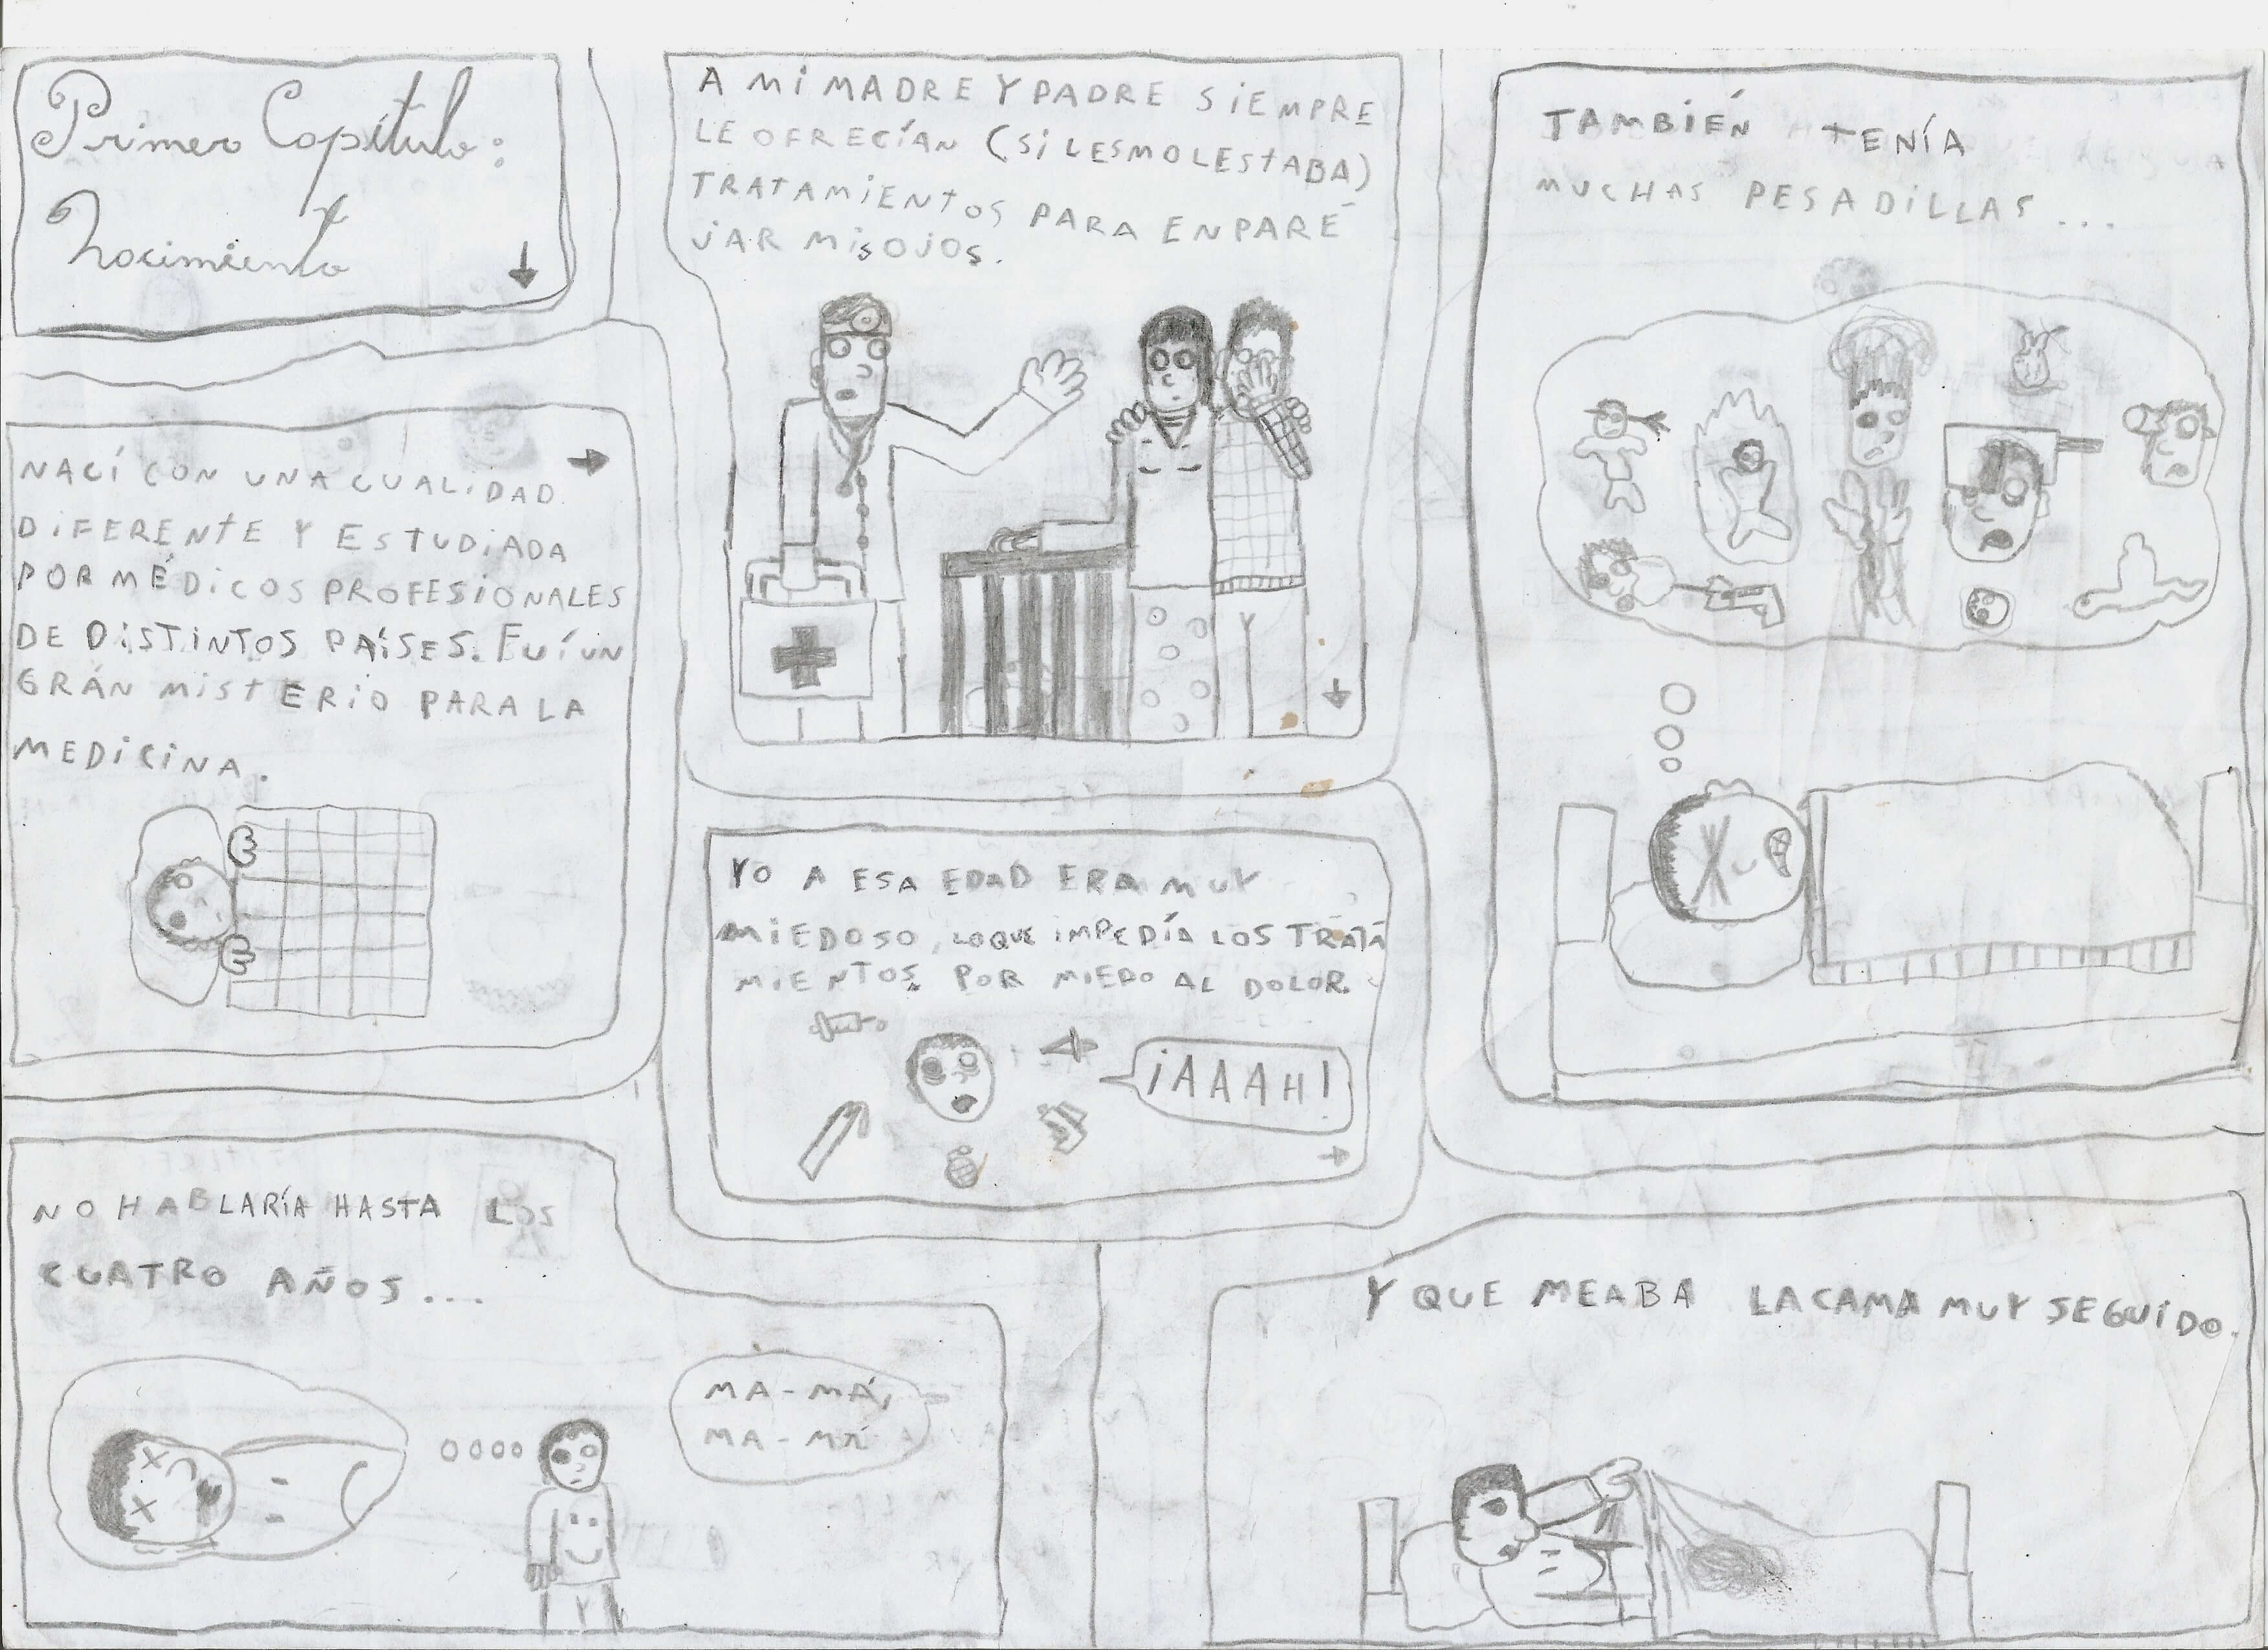 Primer Capítulo:
Nacimiento
NACÍ CON UNA CUALIDAD
DIFERENTE Y ESTUDIADA
POR MÉDICOS PROFESIONALES
DE DISTINTOS PAÍSES. FUÍ UN
GRÁN MISTERIO PARA LA
MEDICINA.
A MI MADRE Y PADRE SIEMPRE
LE OFRECÍAN (SI LES MOLESTABA)
TRATAMIENTOS PARA ENPARE-
JAR MIS OJOS.
YO A ESA EDAD ERA MUY
MIEDOSO, LO QUE IMPEDÍA LOS TRATA
MIENTOS POR MIEDO AL DOLOR.
¡AAAH!
TAMBIÉN TENÍA
MUCHAS PESADILLAS...
NO HABLARÍA HASTA LOS
CUATRO AÑOS...
MA-MÁ,
MA-MÁ
Y QUE MEABA LA CAMA MUY SEGUIDO.